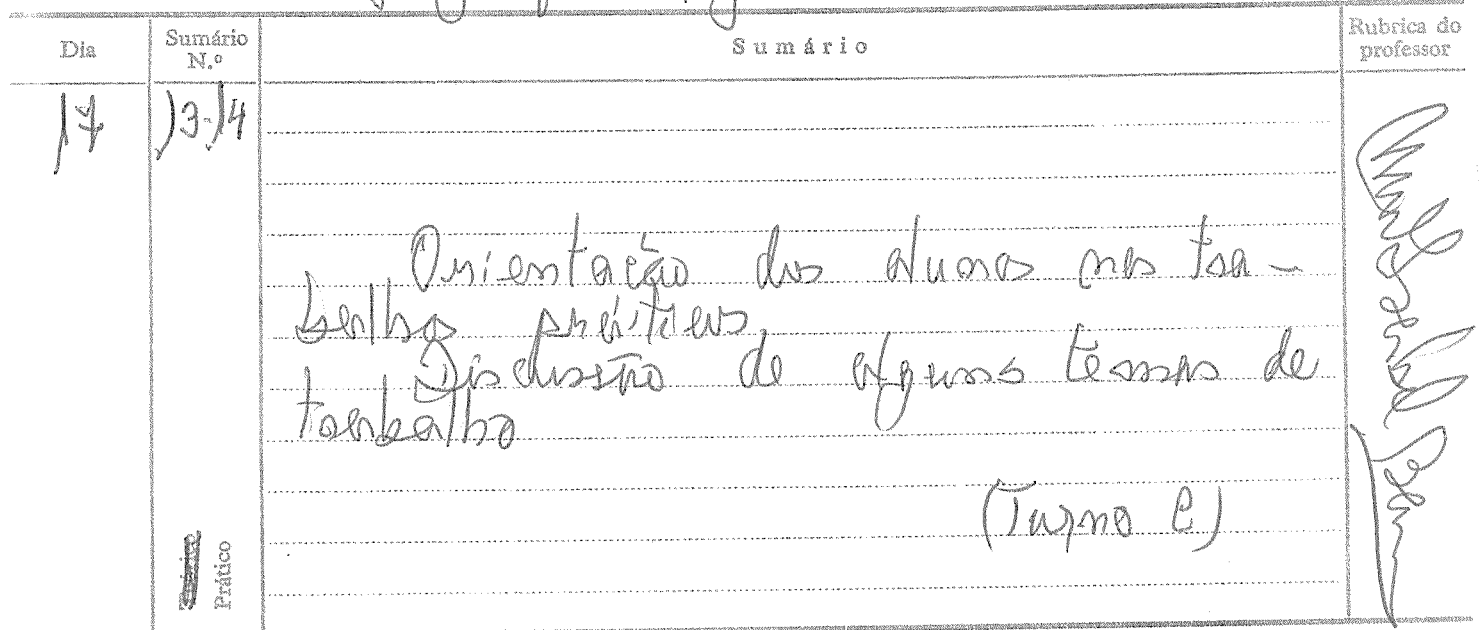 Dia
Sumário N.º
Sumário
Rubrica do professor
17
13-14
Orientação dos alunos nos tra-
balhos práticos.
Discussão de alguns temas de
trabalho
(Turno C)
Prático